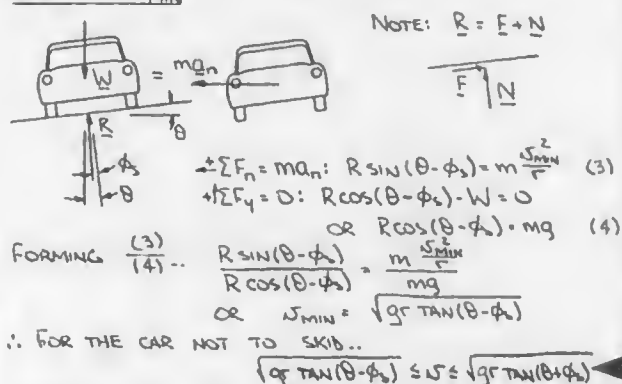 NOTE: R = F + N
W = ma_n
R
θ
φ_s
θ
F N
←+ ΣF_n = ma_n: R SIN(θ-φ_s) = m v²_MIN/r (3)
+↑ΣF_y = 0: R COS(θ-φ_s) - W = 0
OR R COS(θ-φ_s) = mg (4)
FORMING (3)/(4) .. R SIN(θ-φ_s)/R COS(θ-φ_s) = m v²_MIN/r / mg
OR v_MIN = √gr TAN(θ-φ_s)
∴ FOR THE CAR NOT TO SKID..
√gr TAN(θ-φ_s) ≤ v ≤ √gr TAN(θ+φ_s)